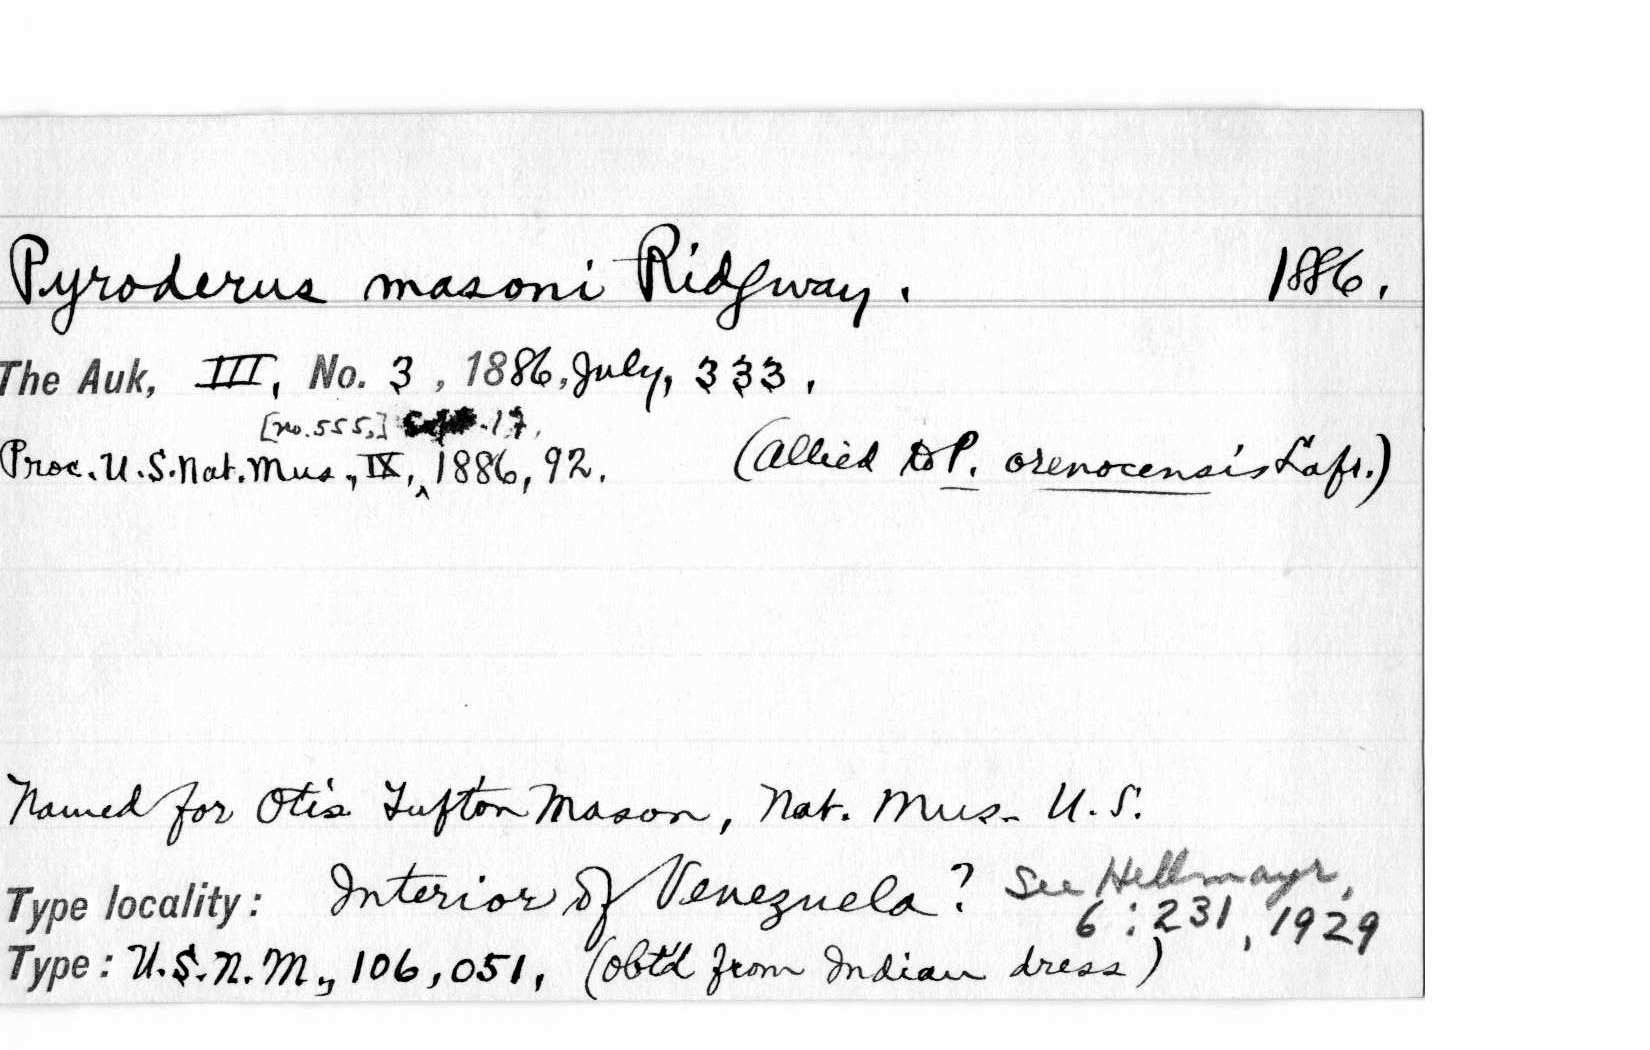 Pyroderus masoni Ridgway. 1886.
The Auk, III, No. 3, 1886, July, 333.
[no. 555,] Sept. 17,
Proc. U.S. Nat. Mus., IX, ‸ 1886, 92. (Allied to P. orenocensis Lafr.)
Named for Otis Tufton Mason, Nat. Mus. U.S.
Type locality: Interior of Venezuela? See Hellmayr,
6:231, 1929
Type: U.S.N.M., 106,051, (obtd from Indian dress)